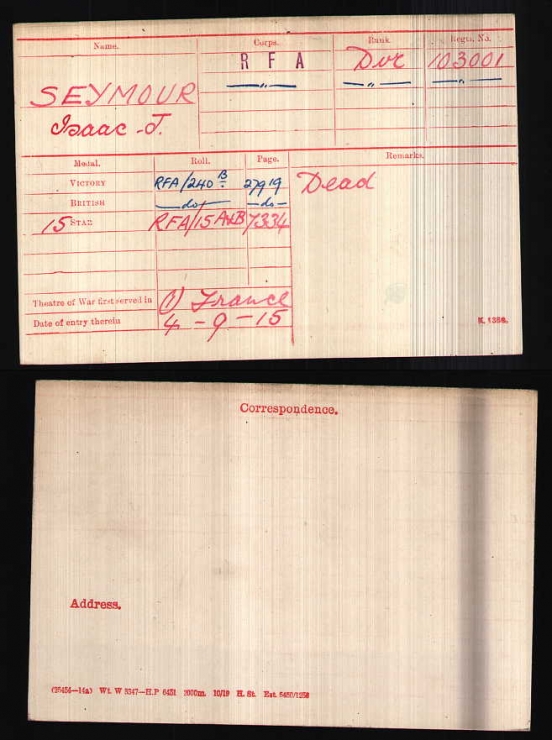 Name. Corps. Rank. Regtl. No.
R F A Dvr 103001
SEYMOUR —„— —„— —„—
Isaac J.
Medal. Roll. Page. Remarks.
VICTORY RFA/240 B 27919 Dead
BRITISH —do— —do—
15 STAR RFA/15 A&B 7334
Theatre of War first served in (1) France
Date of entry therein 4-9-15
K. 1368.
Correspondence.
Address.
Wt. W 5347—H.P 6451 2000m. 10/19 H. St.